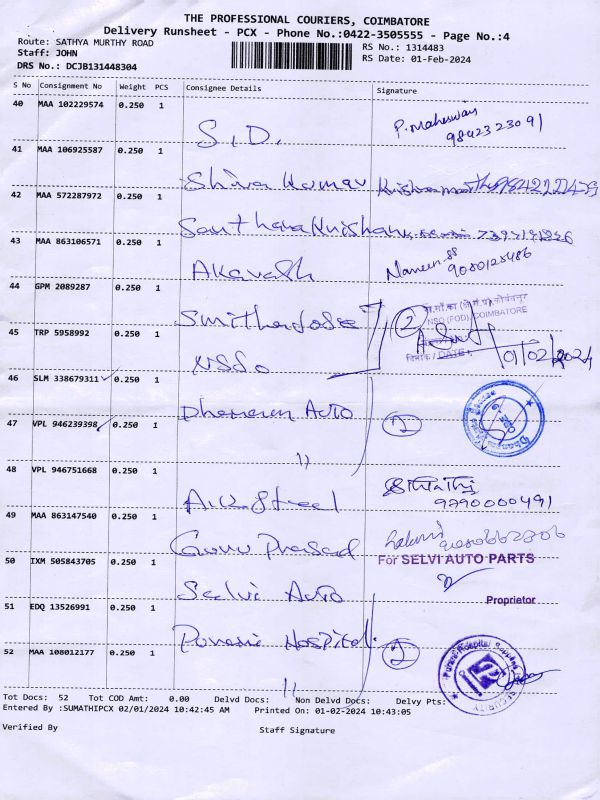 THE PROFESSIONAL COURIERS, COIMBATORE
Delivery Runsheet - PCX - Phone No.:0422-3505555 - Page No.:4
Route: SATHYA MURTHY ROAD
Staff: JOHN
DRS No.: DCJB131448304
RS No.: 1314483
RS Date: 01-Feb-2024
S No Consignment No Weight PCS Consignee Details Signature
40 MAA 102229574 0.250 1
S.D. P. Maheswari
9842323091
41 MAA 106925587 0.250 1
Shiva Kumar
42 MAA 572287972 0.250 1
Santhana Krishnan
43 MAA 863106571 0.250 1
Akavash Naveen
9080128486
44 GPM 2089287 0.250 1
Smitha Jose 2
NSO (FOD), COIMBATORE
दिनांक / DATE
01/02/2024
45 TRP 5958992 0.250 1
NSSO
46 SLM 338679311 0.250 1
Dhanaran Auto 2
47 VPL 946239398 0.250 1
11
48 VPL 946751668 0.250 1
A.V.K. Steel
9790000491
49 MAA 863147540 0.250 1
Guru Prasad
For SELVI AUTO PARTS
Proprietor
50 IXM 505843705 0.250 1
Selvi Auto
51 EDQ 13526991 0.250 1
Purani Hospital 2
52 MAA 108012177 0.250 1
11
SECURITY
Tot Docs: 52 Tot COD Amt: 0.00 Delvd Docs: Non Delvd Docs: Delvy Pts:
Entered By :SUMATHIPCX 02/01/2024 10:42:45 AM Printed On: 01-02-2024 10:43:05
Verified By Staff Signature